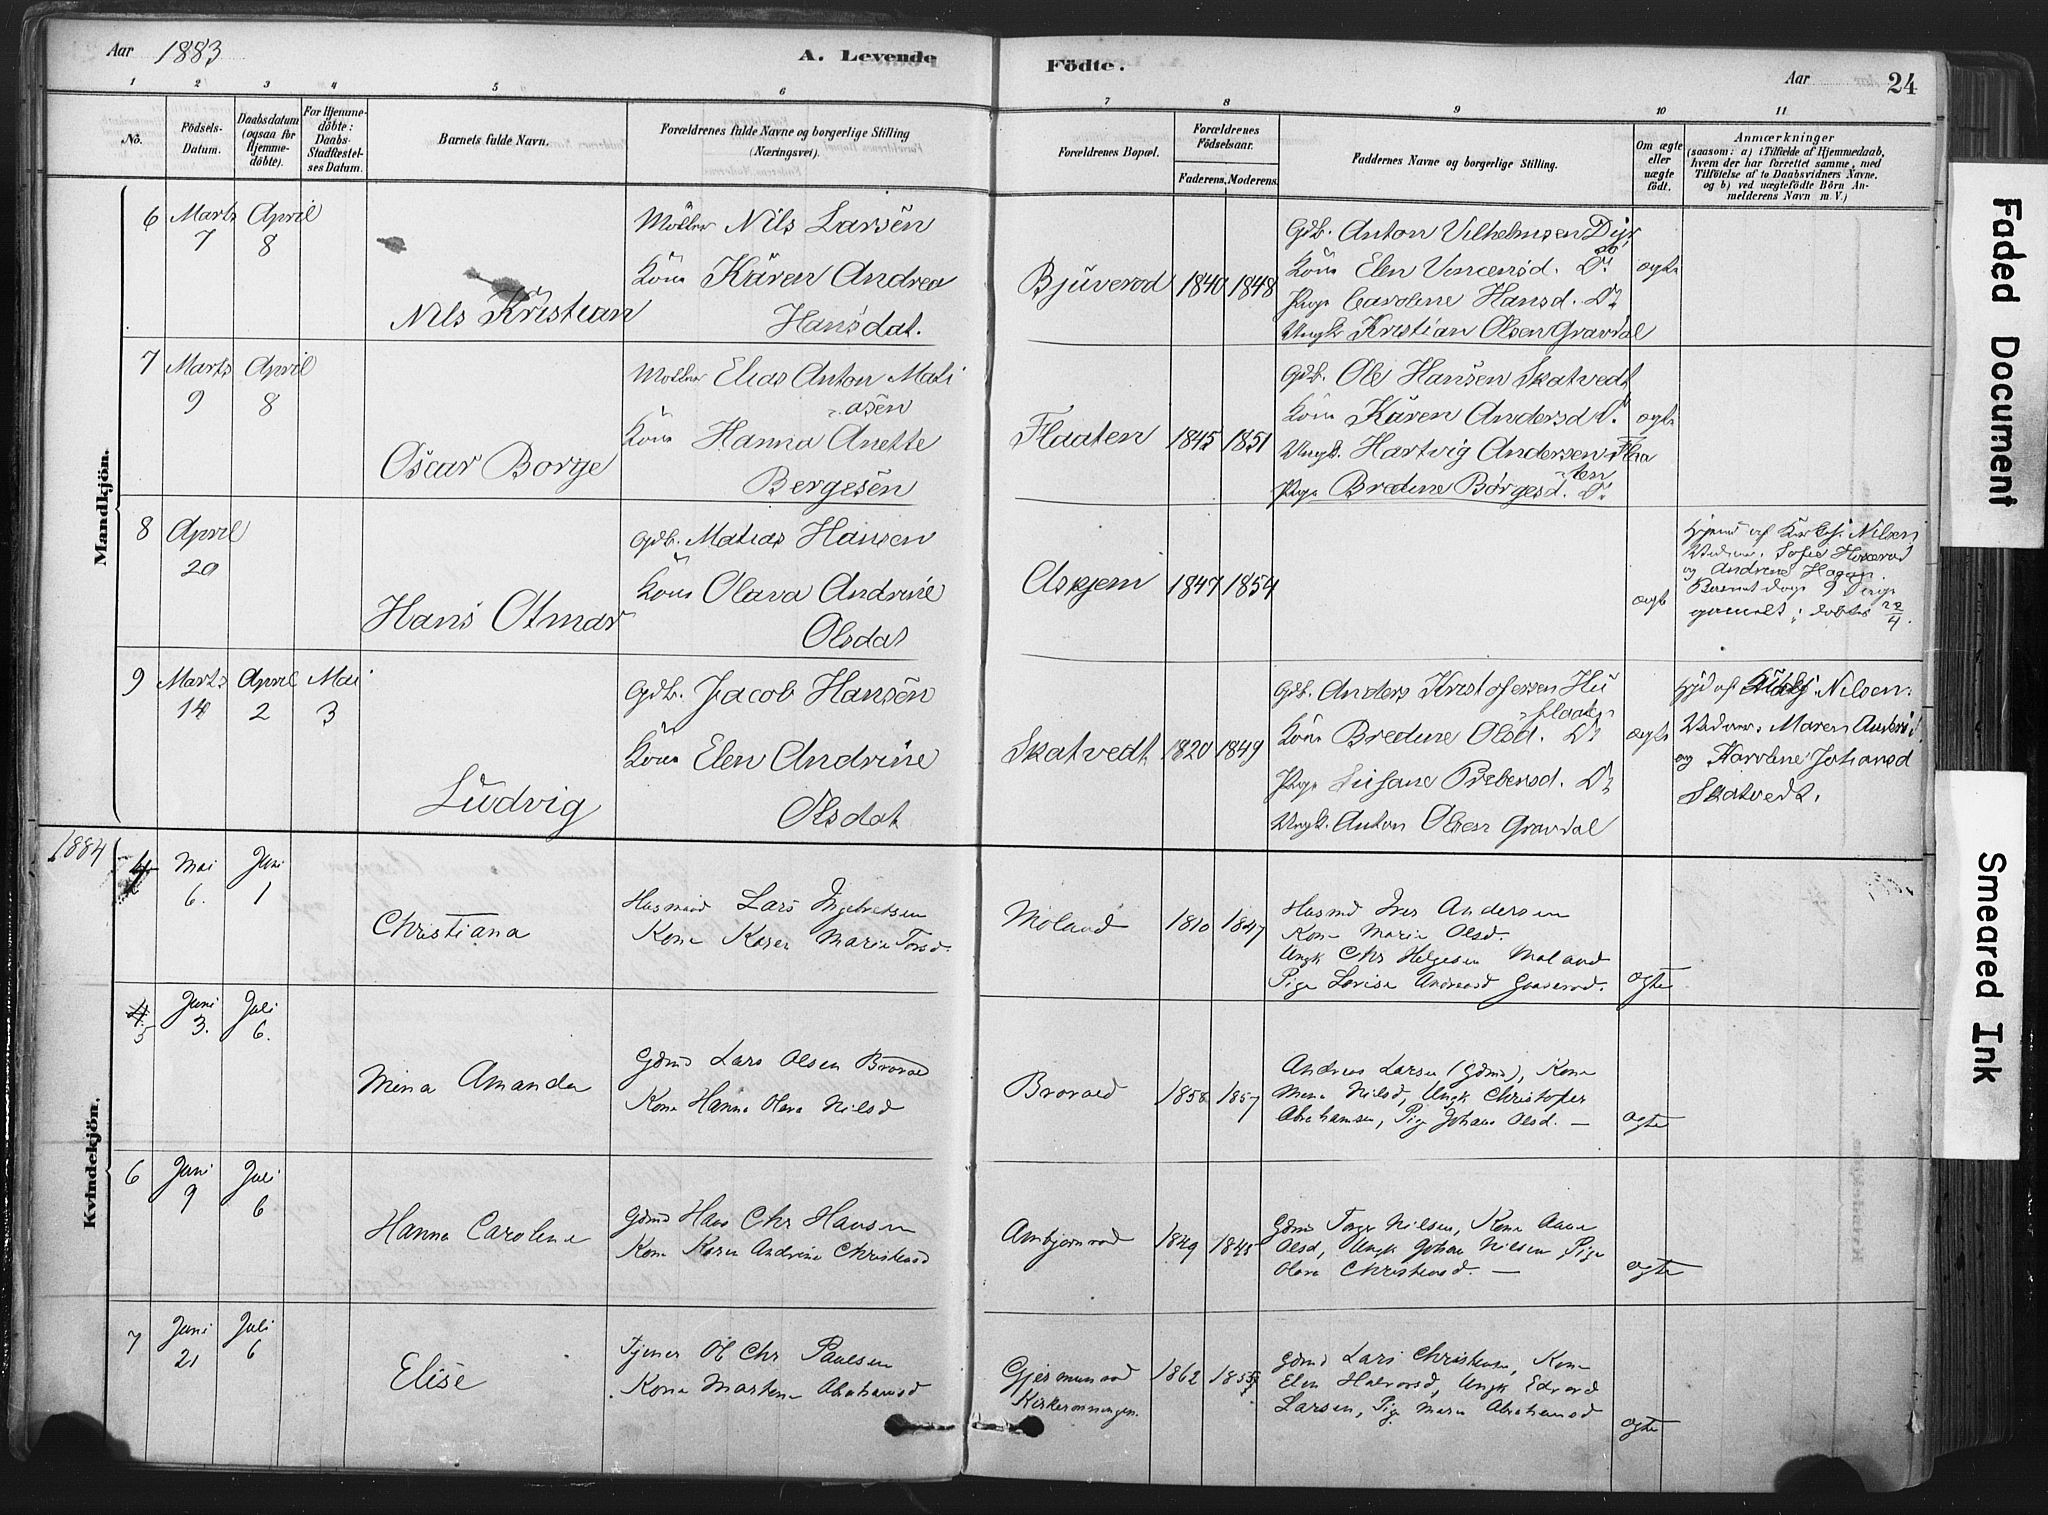 Aar 1883
A. Levende
Födte.
Aar
24
1 2 3 4 5 6 7 8 9 10 11
No.
Födsels-
Datum.
Daabsdatum
(ogsaa for
Hjemme-
döbte).
For Hjemme-
döbte:
Daabs-
Stadfæstel-
ses Datum.
Barnets fulde Navn.
Forældrenes fulde Navne og borgerlige Stilling
(Næringsvei).
Forældrenes Bopæl.
Forældrenes
Födselsaar.
Faderens. Moderens.
Faddernes Navne og borgerlige Stilling.
Om ægte
eller
uægte
födt.
Anmærkninger
(saasom: a) i Tilfælde af Hjemmedaab,
hvem der har forrettet samme, med
Tilföielse af to Daabsvidners Navne.
og b) ved uægtefödte Börn An-
melderens Navn m. V.)
Mandkjön.
6 Marts 7 April 8
Nils Kristian
Möller Nils Larsen
Kone Karen Andrea
Hansdat.
Bjuverød 1840 1848
Gdb. Anton Vilhelmsen
Kone Elen
Pige Caroline Hansd. Do
Ungk. Kristian Olsen Gravdal
ægte
7 Marts 9 April 8
Oscar Borge
Möller Elias Anton Mati
asen
Kone Hanna Anette
Bergesen
Flaaten 1845 1851
Gdb. Ole Hansen Skatvedt
Kone Karen Andersd Do
Ungk. Hartvig Andersen Flaa
ten
Pige Bredine Börgesd. Do
ægte
8 April 20
Hans Otmar
Gdb. Matias Hansen
Kone Olava Andrine
Olsdat
Askjem 1847 1854
ægte
Hjemd af Nilsen
Vidner. Sofie
og Andrine Hagen.
Barnet
gammelt; döbtes 22/4.
9 Marts 14 April 2 Mai 3
Ludvig
Gdb. Jacob Hansen
Kone Elen Andrine
Olsdat
Skatvedt 1820 1849
Gdb. Anders Kristofersen Hu
flaaten
Kone Bredine Olsd. Do
Pige Susane Prebensd. Do
Ungk. Anton Olsen Gravdal
ægte
Hjd af Nilsen.
Vidner: Maren Andersd.
og Karoline Johansd
Skatvedt.
1884
Kvindekjön.
4 Mai 6. Juni 1
Christiana
Husmand Lars Ingebretsen
Kone Karen Marie Torsd.
Moland 1810 1847
Husmd Iver Andersen
Kone Marie Olsd.
Ungk Chr Helgesen Moland
Pige Lovise Andreasd Gaaserød.
ægte
4 5 Juni 3. Juli 6.
Mina Amanda
Gdmd Lars Olsen Brorød
Kone Hanna Olava Nilsd
Brorød 1858 1857
Andreas Larsen (Gdmd), Kone
Mina Nilsd, Ungk Christofer
Abrahamsen, Pige Johane Olsd. —
ægte
6 Juni 9 Juli 6
Hanna Caroline
Gdmd Hans Chr Hansen
Kone Karen Andrine Christensd
Ambjørnrød 1849 1845
Gdmd Torger Nilsen, Kone Anne
Olsd, Ungk Johan Nilsen Pige
Olava Christensd. —
ægte
7 Juni 21 Juli 6
Elise
Tjener Ol Chr Paulsen
Kone Martine Abrahamsd
Gjermunrød
Kirkerønningen.
1862
Gdmd Lars Christensen, Kone
Elen Halvorsd, Ungk Edvard
Larsen, Pige Maren Abrahamsd
ægte
Faded Document
Smeared Ink